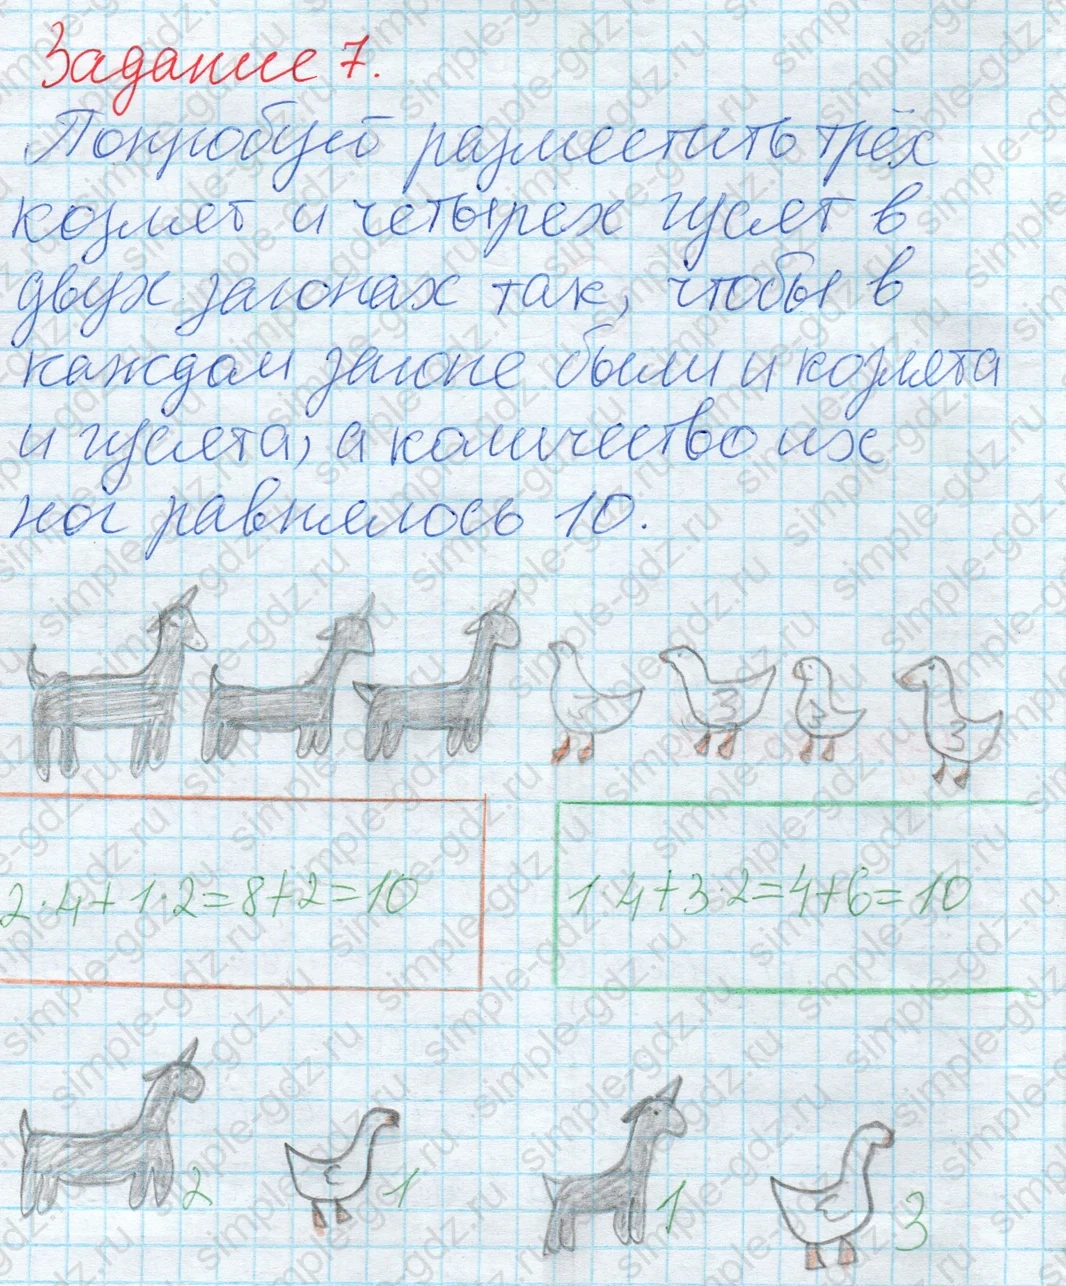 Задание 7.
Попробуй разместить трёх
козлят и четырёх гусят в
двух загонах так, чтобы в
каждом загоне были и козлята
и гусята, а количество их
ног равнялось 10.
2·4+1·2=8+2=10
1·4+3·2=4+6=10
2 1 1 3
simple-gdz.ru